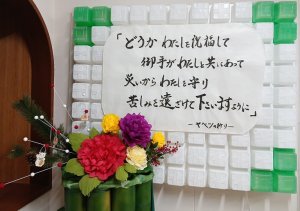 「どうか わたしを祝福して
御手がわたしと共にあって
災いからわたしを守り
苦しみを遠ざけて下さいますように」
－ヤベツの祈り－